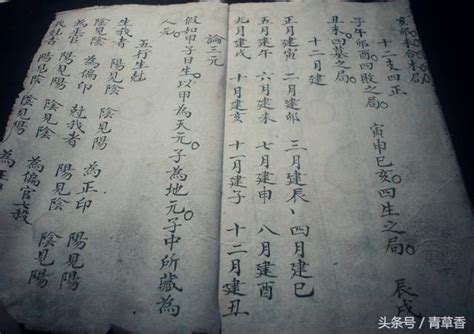 十二支四正
子午卯酉四敗之局。 寅申巳亥。四生之局。 辰戌
丑未四墓之局。
十二月建
正月建寅 二月建卯 三月建辰、四月建巳
五月建午 六月建未 七月建申 八月建酉
九月建戌 十月建亥 十一月建子 十二月建丑
論三元
假如甲子日生。以甲為天元。子為地元。子中所藏為
人元。
五行生尅
生我者 陽見陰 陰見陽 為正印 陽見陽
陰見陰 為偏印 尅我者 陽見陰 陰見陽
為官 陽見陽 陰見陰 為偏官
我尅者 陽見陰 陰見陽 為正
头条号 / 青草香